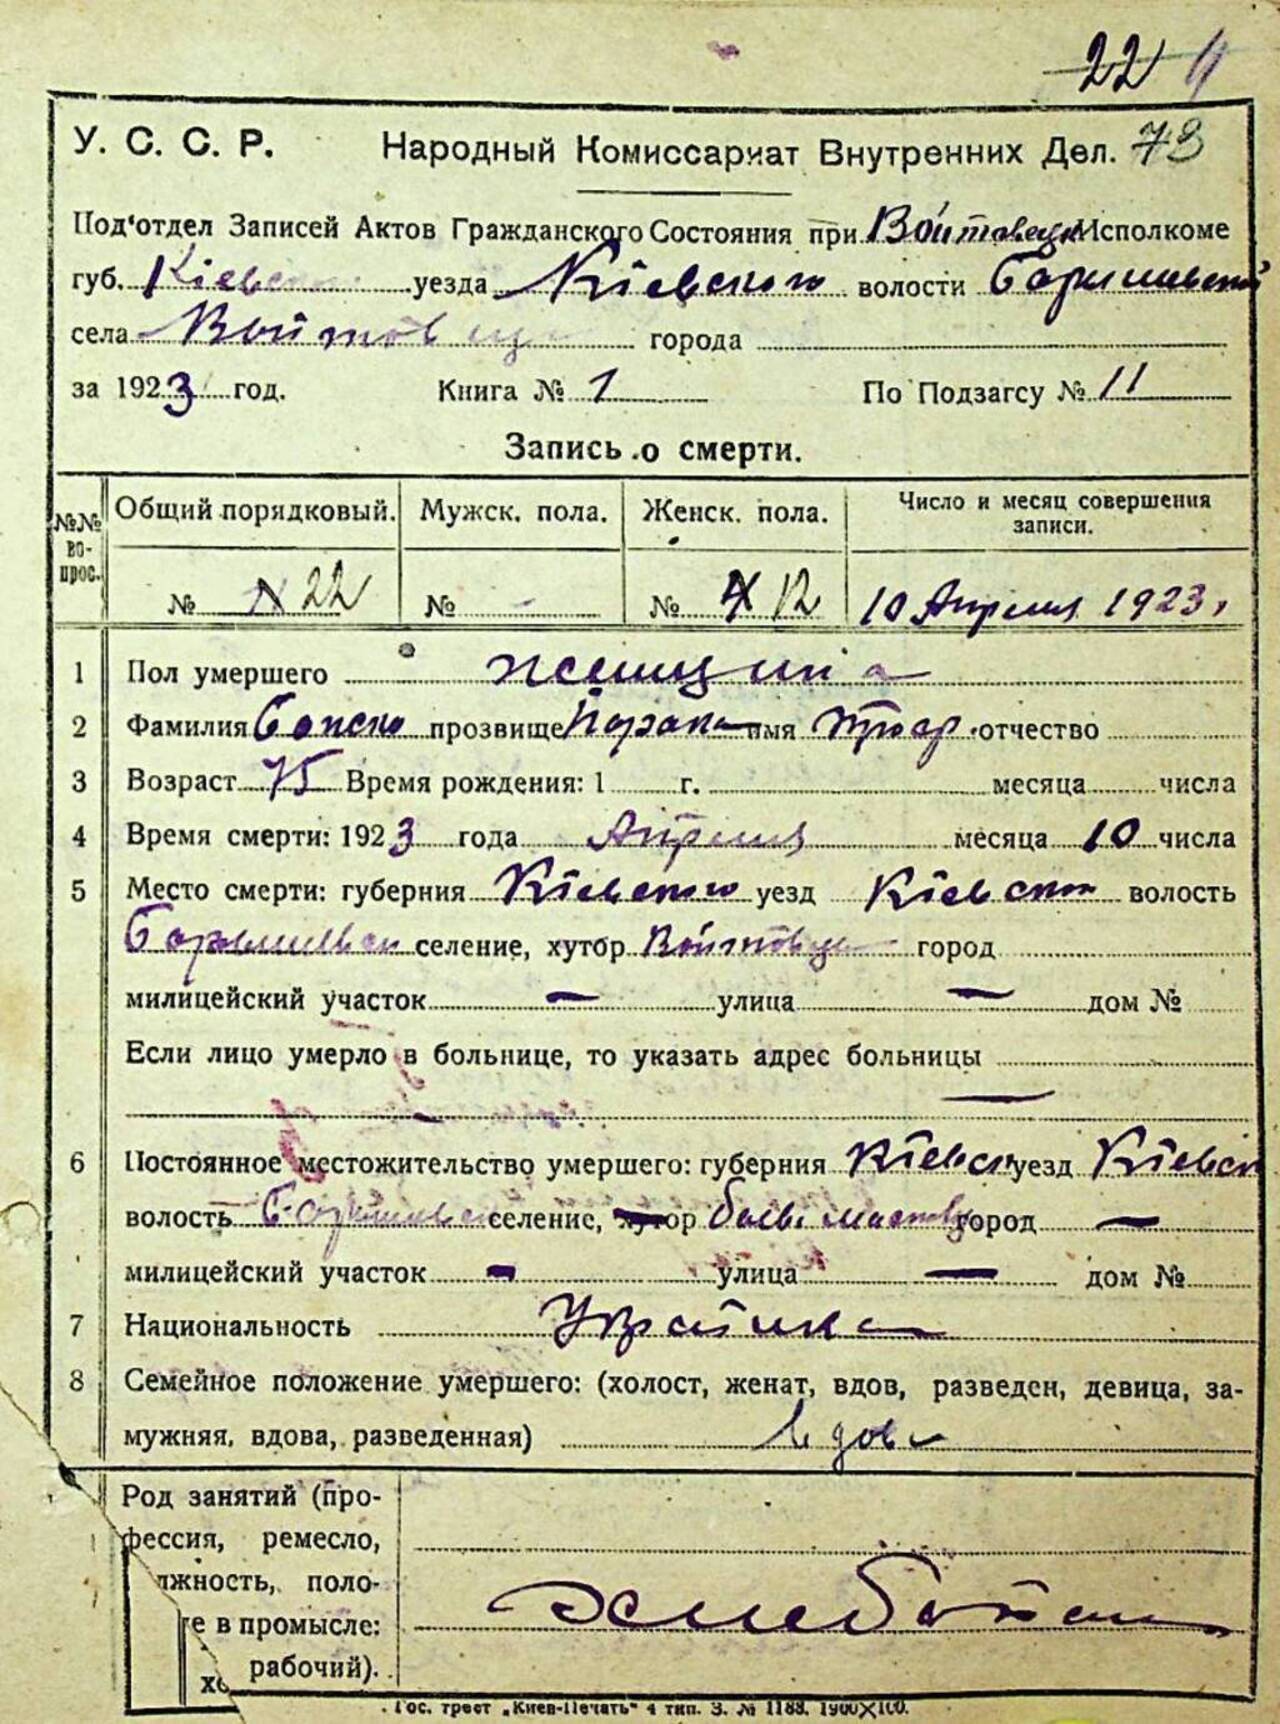 22
У. С. С. Р. Народный Комиссариат Внутренних Дел. 73
Под'отдел Записей Актов Гражданского Состояния при Войтовец Исполкоме
губ. Кіевск уезда Кіевского волости
села Войтовцы города
за 1923 год. Книга № 1 По Подзагсу № 11
Запись о смерти.
№№ во-прос. Общий порядковый. Мужск. пола. Женск. пола. Число и месяц совершения записи.
№ 22 № - № 12 10 Апреля 1923.
1 Пол умершего женщина
2 Фамилия прозвище имя отчество
3 Возраст 75 Время рождения: 1 г. месяца числа
4 Время смерти: 1923 года Апреля месяца 10 числа
5 Место смерти: губерния Кіевского уезд Кіевского волость
селение, хутор Войтовцы город
милицейский участок — улица — дом №
Если лицо умерло в больнице, то указать адрес больницы
—
6 Постоянное местожительство умершего: губерния Кіевск уезд Кіевск
волость селение, хутор город —
милицейский участок — улица — дом №
7 Национальность Украинка
8 Семейное положение умершего: (холост, женат, вдов, разведен, девица, за-
мужняя, вдова, разведенная) вдова
Род занятий (про-
фессия, ремесло,
лжность, поло-
е в промысле:
хо рабочий).
Гос. трест „Киев-Печать" 4 тип. З. № 1188. 1900×100.